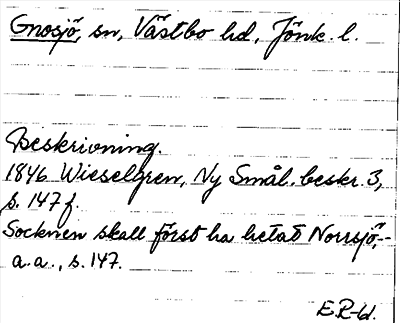 Gnosjö, sn, Västbo hd, Jönk. l.
Beskrivning.
1846 Wieselgren, Ny Smål. beskr. 3,
s. 147 f.
Socknen skall först ha hetat Norrsjö,-
a.a., s. 147.
E.R-d.